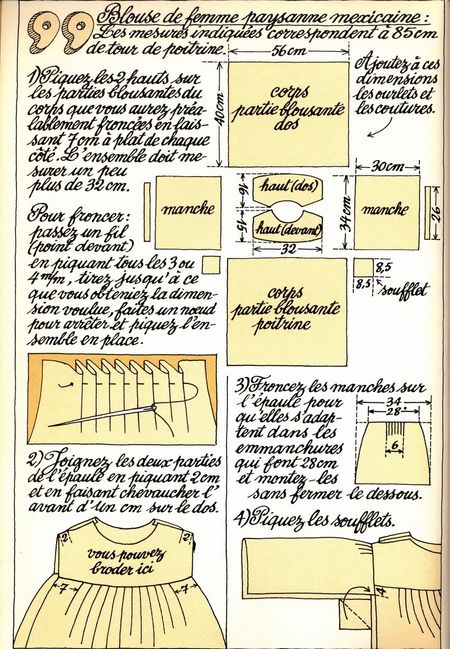 99
Blouse de femme paysanne mexicaine :
Les mesures indiquées correspondent à 85cm
de tour de poitrine.
56cm
40cm
corps
partie blousante
dos
Ajoutez à ces
dimensions
les ourlets et
les coutures.
1) Piquez les 2 hauts sur
les parties blousantes du
corps que vous aurez préa-
lablement froncées en fais-
sant 7cm à plat de chaque
côté. L'ensemble doit me-
surer un peu
plus de 32 cm.
manche
16
haut (dos)
15
haut (devant)
32
30cm
34cm
manche
26
Pour froncer :
passez un fil
(point devant)
en piquant tous les 3 ou
4 m/m, tirez jusqu'à ce
que vous obteniez la dimen-
sion voulue, faites un nœud
pour arrêter et piquez l'en-
semble en place.
corps
partie blousante
poitrine
8,5
8,5
soufflet
2) Joignez les deux parties
de l'épaule en piquant 2cm
et en faisant chevaucher l'
avant d'un cm sur le dos.
3) Froncez les manches sur
l'épaule pour
qu'elles s'adap-
tent dans les
emmanchures
qui font 28cm
et montez-les
sans fermer le dessous.
34
28
6
4) Piquez les soufflets.
2
2
vous pouvez
broder ici
7
7
4